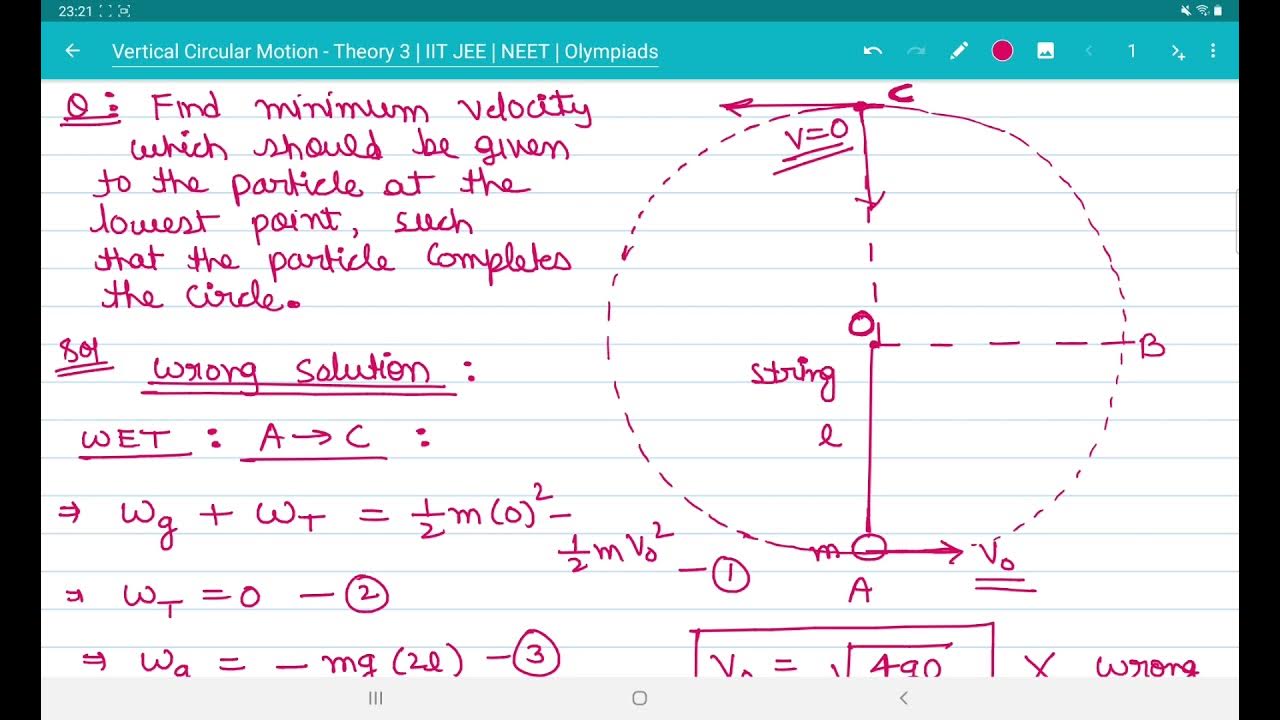 23:21
Vertical Circular Motion - Theory 3 | IIT JEE | NEET | Olympiads
1
Q: Find minimum velocity
which should be given
to the particle at the
lowest point, such
that the particle completes
the circle.
Sol
Wrong Solution :
WET : A → C :
⇒ Wg + WT = 1/2 m(0)² -
1/2 mV₀² - ①
⇒ WT = 0 - ②
⇒ Wg = - mg (2l) - ③
C
V=0
O
B
string
l
m
V₀
A
V₀ = √4gl
X wrong